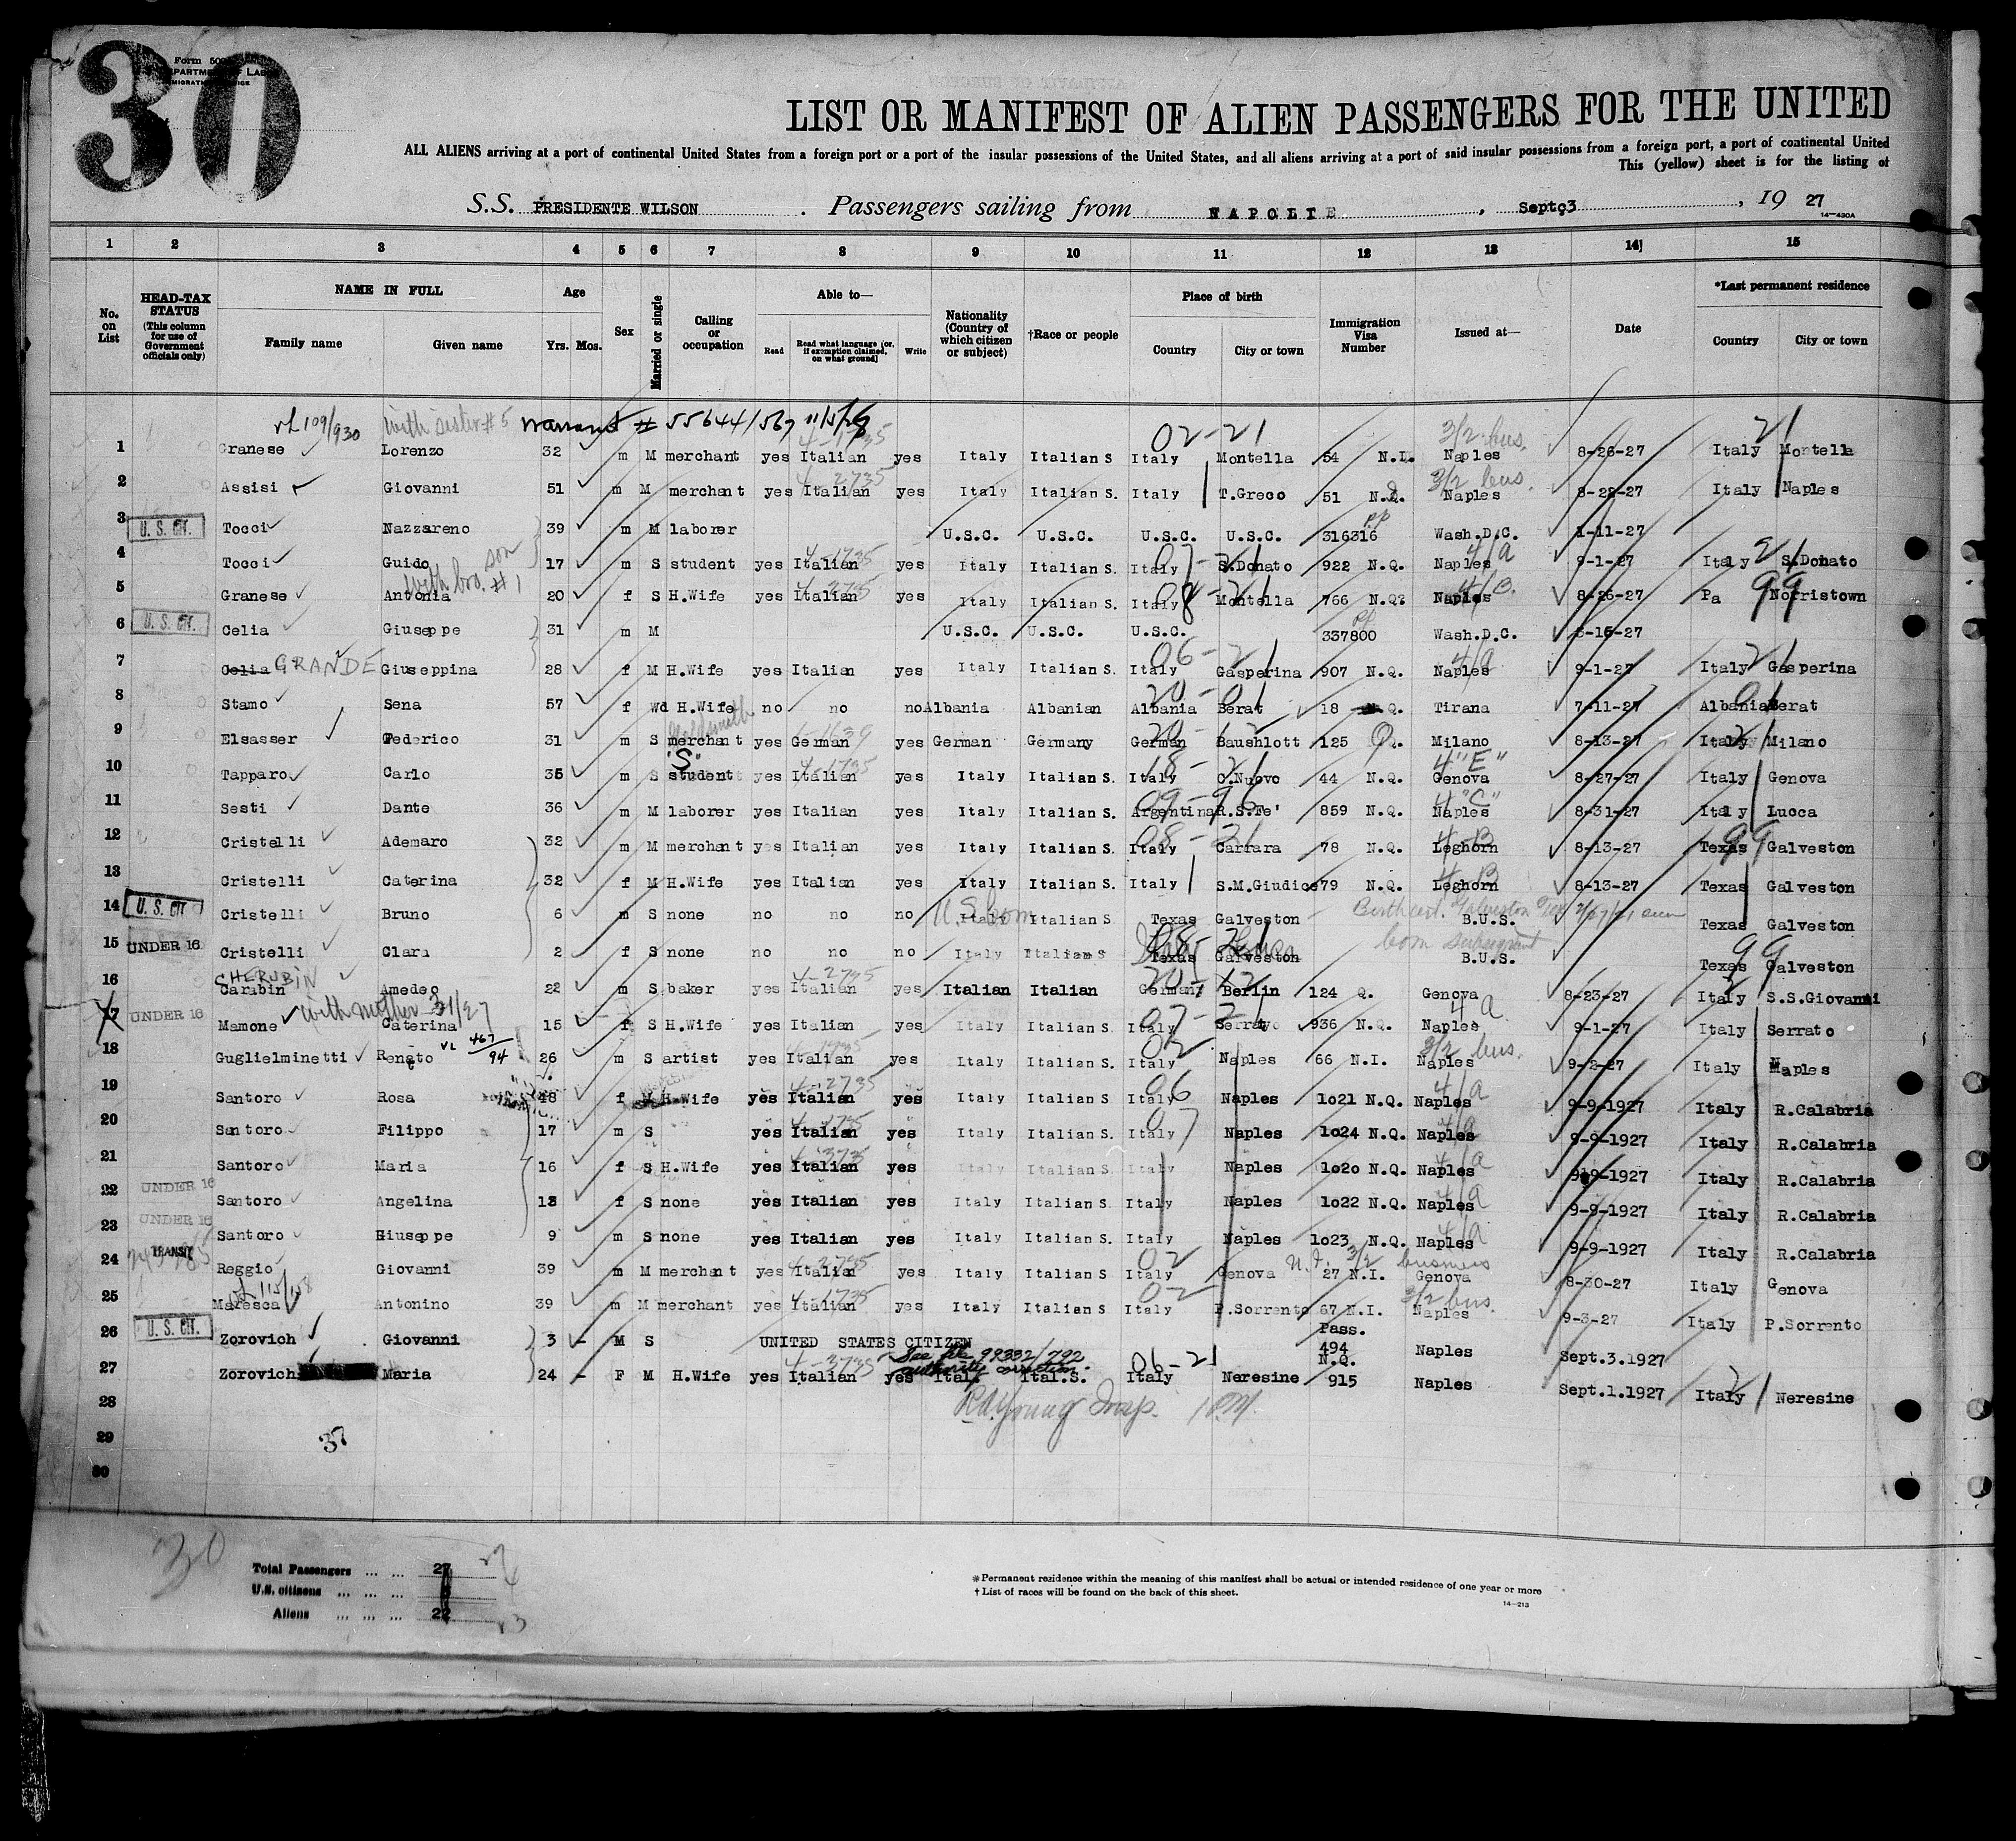 30
Form 500
DEPARTMENT OF LABOR
IMMIGRATION SERVICE
LIST OR MANIFEST OF ALIEN PASSENGERS FOR THE UNITED
ALL ALIENS arriving at a port of continental United States from a foreign port or a port of the insular possessions of the United States, and all aliens arriving at a port of said insular possessions from a foreign port, a port of continental United
This (yellow) sheet is for the listing of
S.S. PRESIDENTE WILSON . Passengers sailing from NAPOLIE , Sept.3 , 19 27
14—430A
1 2 3 4 5 6 7 8 9 10 11 12 13 14 15
No. on List
HEAD-TAX STATUS (This column for use of Government officials only)
NAME IN FULL Family name Given name
Age Yrs. Mos.
Sex
Married or single
Calling or occupation
Able to— Read Read what language (or, if exemption claimed, on what ground) Write
Nationality (Country of which citizen or subject)
†Race or people
Place of birth Country City or town
Immigration Visa Number
Issued at—
Date
*Last permanent residence Country City or town
109/930 with sister #5 warrant # 55644/567 02-21 3/2 bus. 21
1 Granese Lorenzo 32 m M merchant yes Italian yes Italy Italian S Italy Montella 54 N.I. Naples 8-26-27 Italy Montella
4-2735 3/2 bus.
2 Assisi Giovanni 51 m M merchant yes Italian yes Italy Italian S. Italy T.Greco 51 Naples 8-22-27 Italy Naples
3 U. S. CIT. Tocci Nazzareno 39 m M laborer U.S.C. U.S.C. U.S.C. U.S.C. 316316 pp Wash.D.C. 1-11-27
son 4-1735 07-21 4/a 21
4 Tocci Guido 17 m S student yes Italian yes Italy Italian S. Italy S.Donato 922 N.Q. Naples 9-1-27 Italy S.Donato
with bro. #1 4-2735 08-21 4/B. 99
5 Granese Antonia 20 f S H.Wife yes Italian yes Italy Italian S. Italy Montella 766 N.Q. Naples 8-26-27 Pa Norristown
6 U. S. CIT. Celia Giuseppe 31 m M U.S.C. U.S.C. U.S.C. 337800 Wash.D.C. -16-27
06-21 4/a 21
7 Celia GRANDE Giuseppina 28 f M H.Wife yes Italian yes Italy Italian S. Italy Gasperina 907 N.Q. Naples 9-1-27 Italy Gasperina
20-01 01
8 Stamo Sena 57 f Wd H.Wife no no no Albania Albanian Albania Berat 18 N.Q. Tirana 7-11-27 Albania Berat
20-12
9 Elsasser Federico 31 m S merchant yes German yes German Germany German Baushlott 125 Q. Milano 8-13-27 Italy Milano
"S" 4-1735 18-21 4"E"
10 Tapparo Carlo 35 m S student yes Italian yes Italy Italian S. Italy C.Nuovo 44 N.Q. Genova 8-27-27 Italy Genova
09-96 4"C"
11 Sesti Dante 36 m M laborer yes Italian yes Italy Italian S. Argentina R.S.Fe' 859 N.Q. Naples 8-31-27 Italy Lucca
08-21 4-B 99
12 Cristelli Ademaro 32 m M merchant yes Italian yes Italy Italian S. Italy Carrara 78 N.Q. Leghorn 8-13-27 Texas Galveston
4-B
13 Cristelli Caterina 32 f M H.Wife yes Italian yes Italy Italian S. Italy S.M.Giudice 79 N.Q. Leghorn 8-13-27 Texas Galveston
U.S. born Birth cert. Galveston Tex
14 U. S. CIT. Cristelli Bruno 6 m S none no no no Italy Italian S Texas Galveston B.U.S. Texas Galveston
08-21 born subsequent 99
15 UNDER 16 Cristelli Clara 2 f S none no no no Italy Italian S Texas Galveston B.U.S. Texas Galveston
CHERUBIN 4-2735 20-12
16 Carabin Amedeo 22 m S baker yes Italian yes Italian Italian Germany Berlin 124 Q. Genova 8-23-27 Italy S.S.Giovanni
with mother 31/27 07-21 4 a.
17 UNDER 16 Mamone Caterina 15 f S H.Wife yes Italian yes Italy Italian S. Italy Serrato 936 N.Q. Naples 9-1-27 Italy Serrato
VL 467/94 02 3/2 bus.
18 Guglielminetti Renato 26 m S artist yes Italian yes Italy Italian S. Italy Naples 66 N.I. Naples 9-2-27 Italy Naples
4-2735 06 4/a
19 Santoro Rosa 48 f H.Wife yes Italian yes Italy Italian S Italy Naples 1o21 N.Q. Naples 9-9-1927 Italy R.Calabria
07 4/a
20 Santoro Filippo 17 m S yes Italian yes Italy Italian S. Italy Naples 1o24 N.Q. Naples 9-9-1927 Italy R.Calabria
4/a
21 Santoro Maria 16 f S H.Wife yes Italian yes Italy Italian S. Italy Naples 1o2o N.Q. Naples 9-9-1927 Italy R.Calabria
4/a
22 UNDER 16 Santoro Angelina 13 f S none yes Italian yes Italy Italian S Italy Naples 1o22 N.Q. Naples 9-9-1927 Italy R.Calabria
4/a
23 UNDER 16 Santoro Giuseppe 9 m S none yes Italian yes Italy Italian S. Italy Naples 1o23 N.Q. Naples 9-9-1927 Italy R.Calabria
4-2735 02 N.I. 3/2 business
24 TRANSIT Reggio Giovanni 39 m M merchant yes Italian yes Italy Italian S Italy Genova 27 N.I. Genova 8-30-27 Italy Genova
115/158 4-1735 02 3/2 bus.
25 Maresca Antonino 39 m M merchant yes Italian yes Italy Italian S Italy P.Sorrento 67 N.I. Naples 9-3-27 Italy P.Sorrento
26 U. S. CIT. Zorovich Giovanni 3 - M S UNITED STATES CITIZEN Pass. 494 Naples Sept.3.1927
4-3735 See file 99332/792 authority correction. 06-21 21
27 Zorovich Maria 24 - F M H.Wife yes Italian yes Italy Ital.S. Italy Neresine N.Q. 915 Naples Sept.1.1927 Italy Neresine
28 Insp.
29 37
30
30
Total Passengers ... ... 27
U.S. citizens ... ... ...
Aliens ... ... ... 22
*Permanent residence within the meaning of this manifest shall be actual or intended residence of one year or more
†List of races will be found on the back of this sheet.
14—213